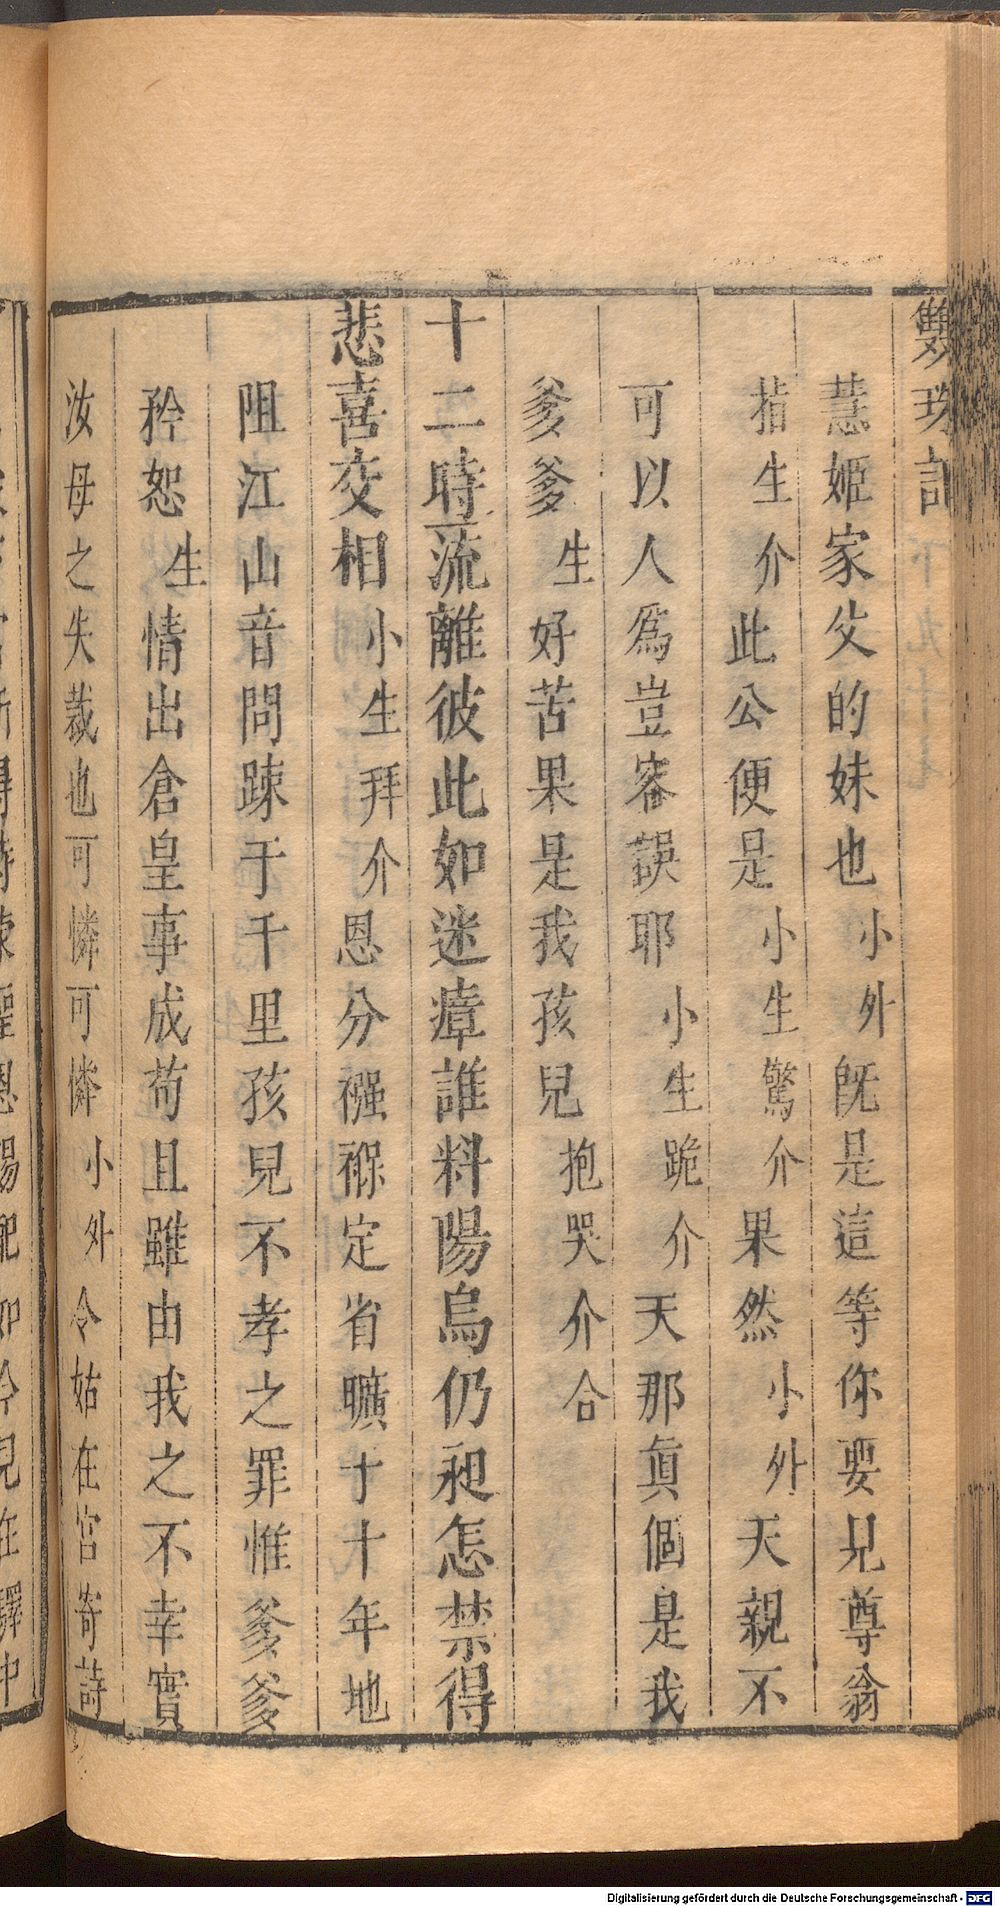 雙珠記
慧姬家父的妹也小外旣是這等你要見尊翁
指生介此公便是小生驚介果然小外天親不
可以人爲豈審誤耶小生跪介天那眞個是我
爹爹生好苦果是我孩兒抱哭介合
十二時流離彼此如迷瘴誰料陽烏仍昶怎禁得
悲喜交相小生拜介恩分襁褓定省曠于十年地
阻江山音問踈于千里孩兒不孝之罪惟爹爹
矜恕生情出倉皇事成苟且雖由我之不幸實
汝母之失裁也可憐可憐小外令姑在宮寄詩
Digitalisierung gefördert durch die Deutsche Forschungsgemeinschaft - DFG